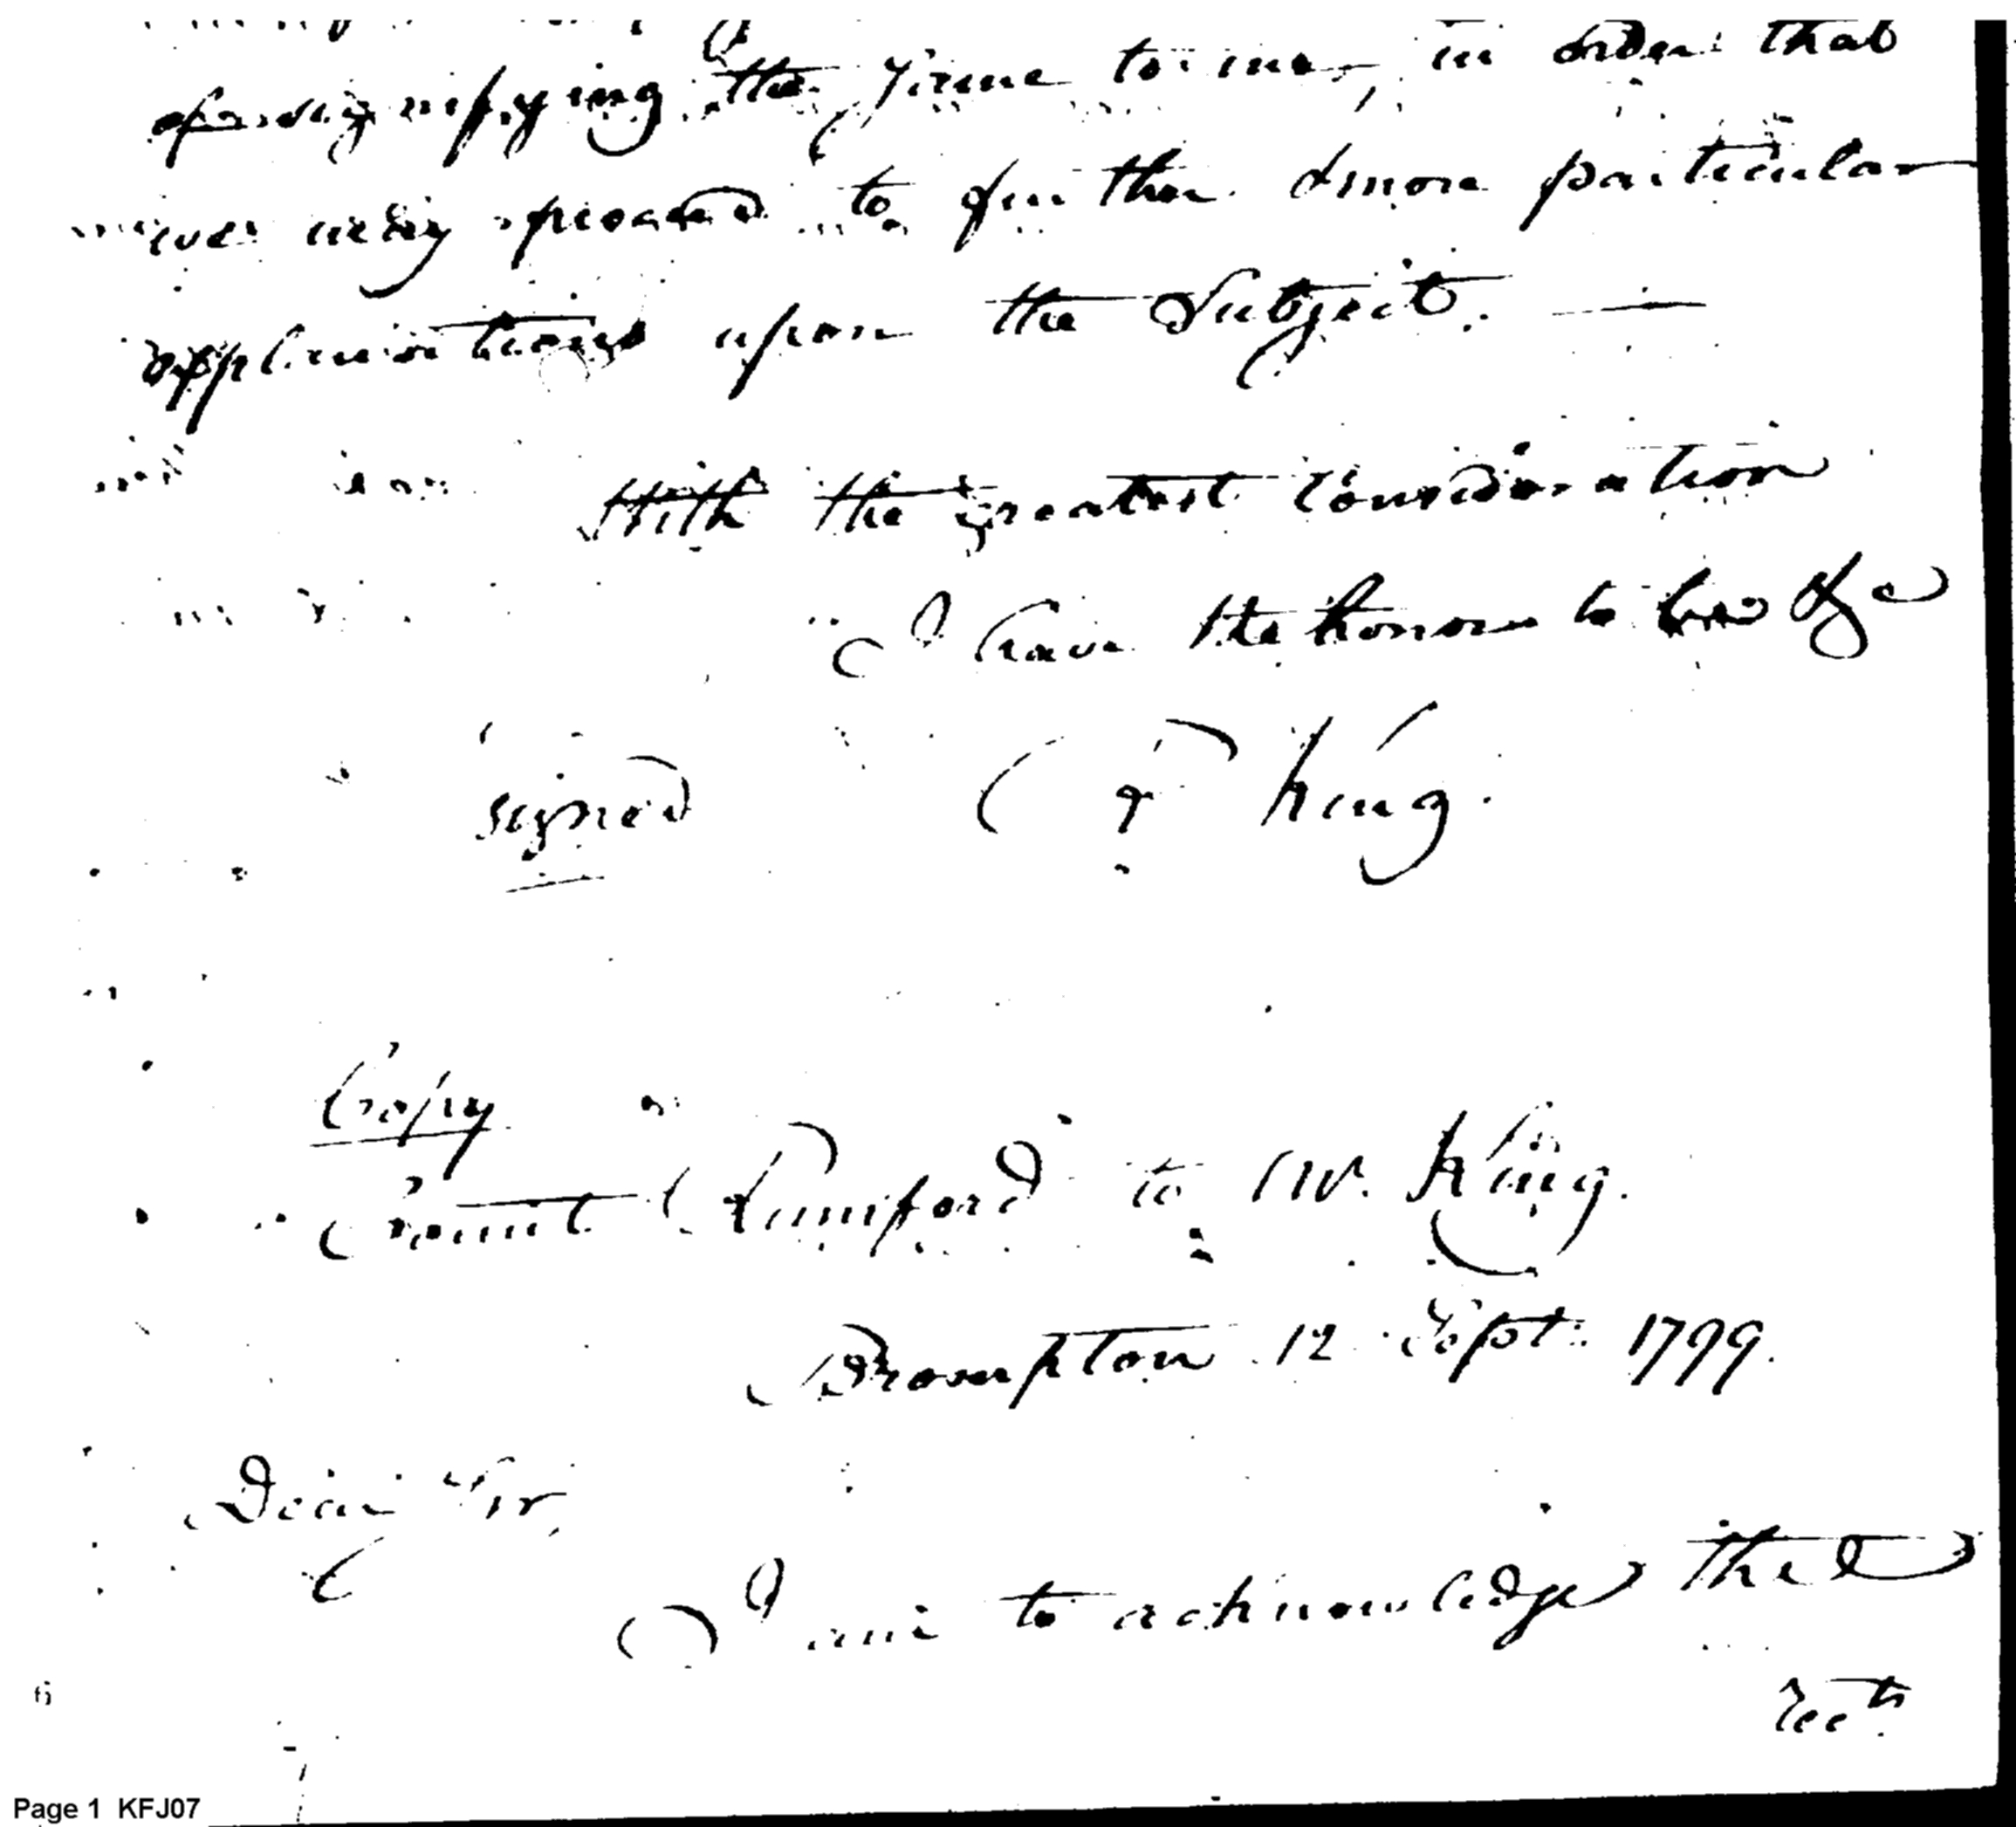 of signifying the same to me, in order that
we may proceed to further & more particular
explanations upon the Subject. —
With the greatest Consideration
I have the honour to be &c
signed R King.
Copy
Count Rumford to Mr. King.
Brompton 12 Sept: 1799.
Dear Sir,
I am to acknowledge the
rect
Page 1 KFJ07